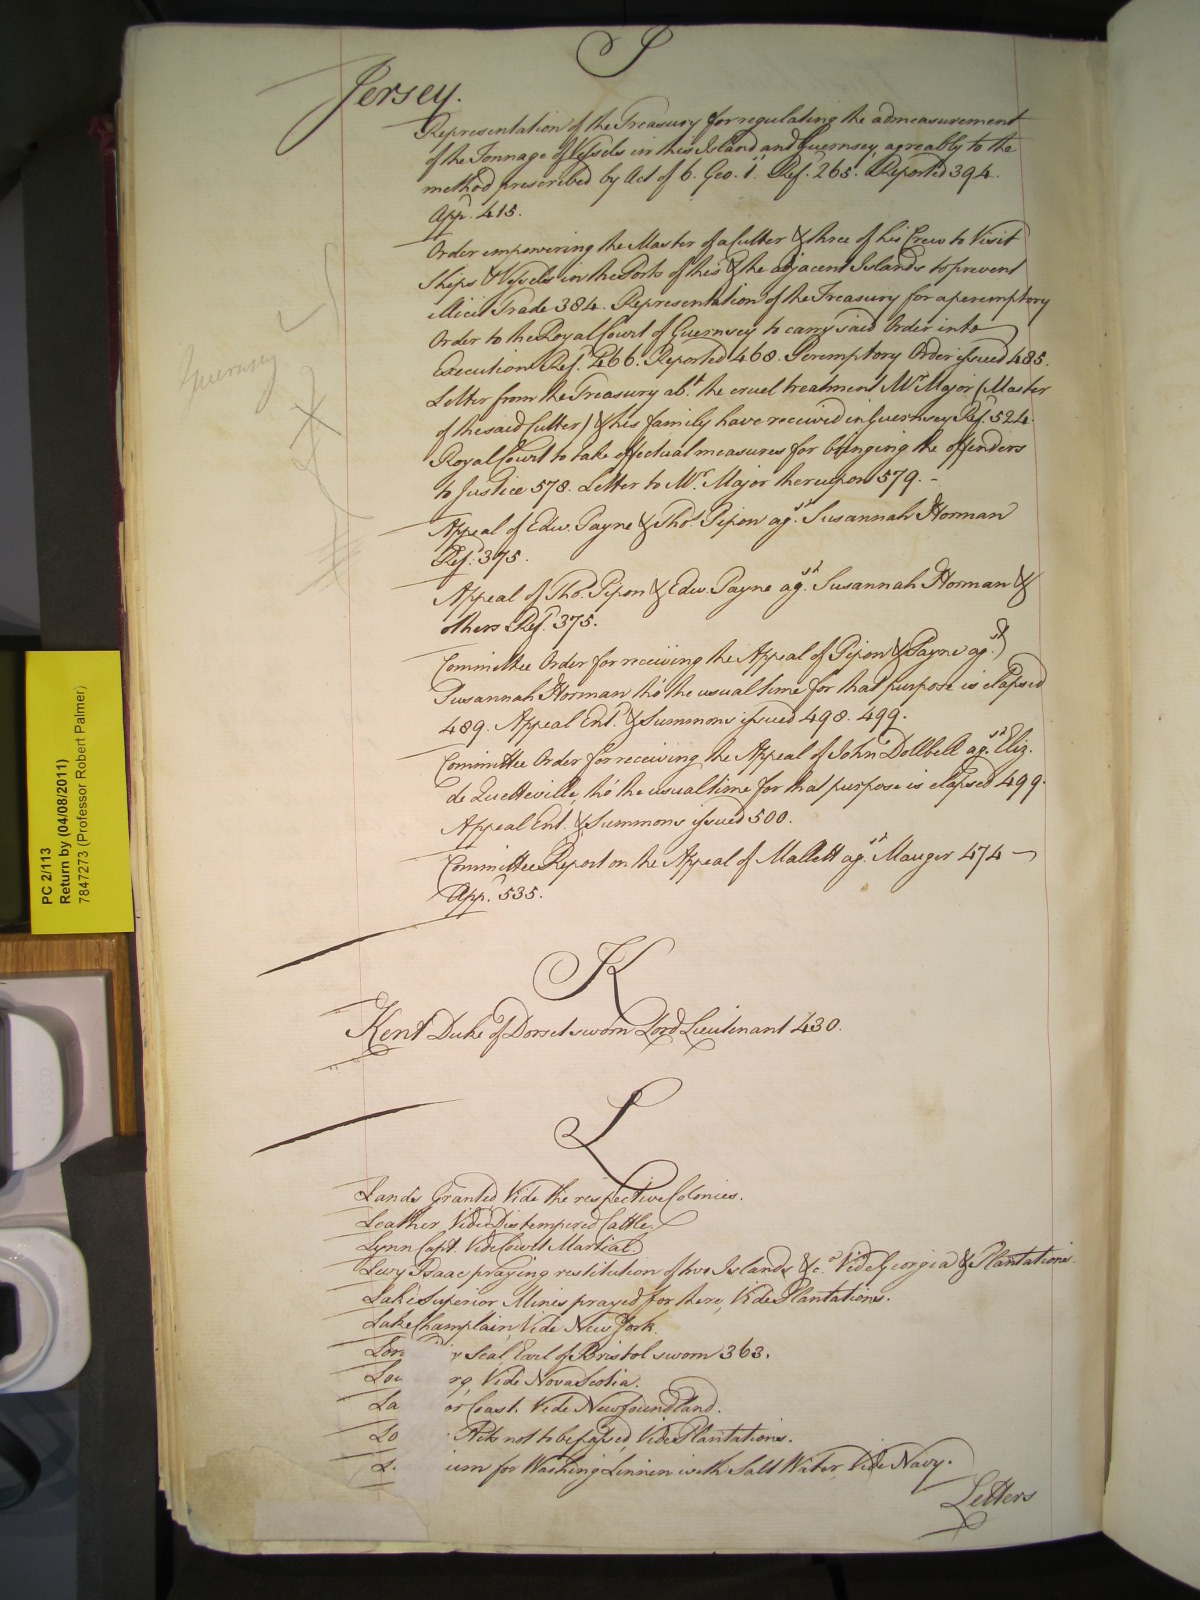 J
Jersey.
Representation of the Treasury for regulating the admeasurement
of the Tonnage of Vessels in this Island and Guernsey, agreably to the
method prescribed by Act of 6. Geo. 1st. Refd. 265. Reported 394.
Appd. 415.
Order empowering the Master of a Cutter & three of his Crew to Visit
Ships & Vessels in the Ports of this & the adjacent Islands to prevent
illicit Trade 384. Representation of the Treasury for a peremptory
Order to the Royal Court of Guernsey to carry said Order into
Execution Refd. 466. Reported 468. Peremptory Order issued 485.
Letter from the Treasury abt. the cruel treatment Mr. Major (Master
of the said Cutter) & his family have received in Guernsey Refd. 524.
Royal Court to take effectual measures for bringing the offenders
to Justice 578. Letter to Mr. Major thereupon 579. -
Guernsey
Appeal of Edw. Payne & Thos. Pipon agst. Susannah Horman
Refd. 375.
Appeal of Thos. Pipon & Edw. Payne agst. Susannah Horman &
others Refd. 375.
Committee Order for receiving the Appeal of Pipon & Payne agst.
Susannah Horman tho' the usual time for that purpose is elapsed
489. Appeal Ent. & Summons issued 498. 499.
Committee Order for receiving the Appeal of John Dollbell agst. Eliz.
de Quetteville, tho' the usual time for that purpose is elapsed 499.
Appeal Ent. & Summons issued 500.
Committee Report on the Appeal of Mallett agst. Mauger 474 —
Appd. 535.
K
Kent Duke of Dorset sworn Lord Lieutenant 430.
L
Lands Granted Vide the respective Colonies.
Leather Vide Distempered Cattle.
Lynn Capt. Vide Court Martial
Levy Isaac praying restitution of two Islands &c.a Vide Georgia & Plantations.
Lake Superior Mines prayed for there, Vide Plantations.
Lake Champlain, Vide New York.
Lor y Seal Earl of Bristol sworn 363.
Lou rg Vide Nova Scotia.
La or Coast. Vide Newfoundland.
Lo Acts not to be passed, Vide Plantations.
L. ium for Washing Linnen with Salt Water, Vide Navy.
Letters
PC 2/113
Return by (04/08/2011)
7847273 (Professor Robert Palmer)